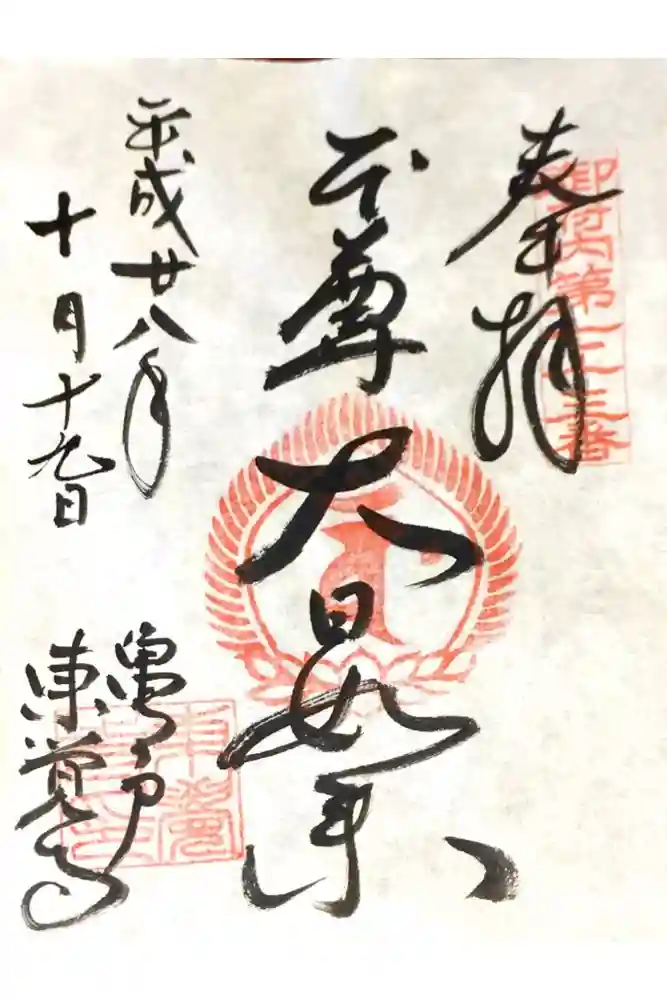 奉拝
御府内第七十三番
本尊
大日如来
平成廿八年
十月十九日
亀戸
東覚寺